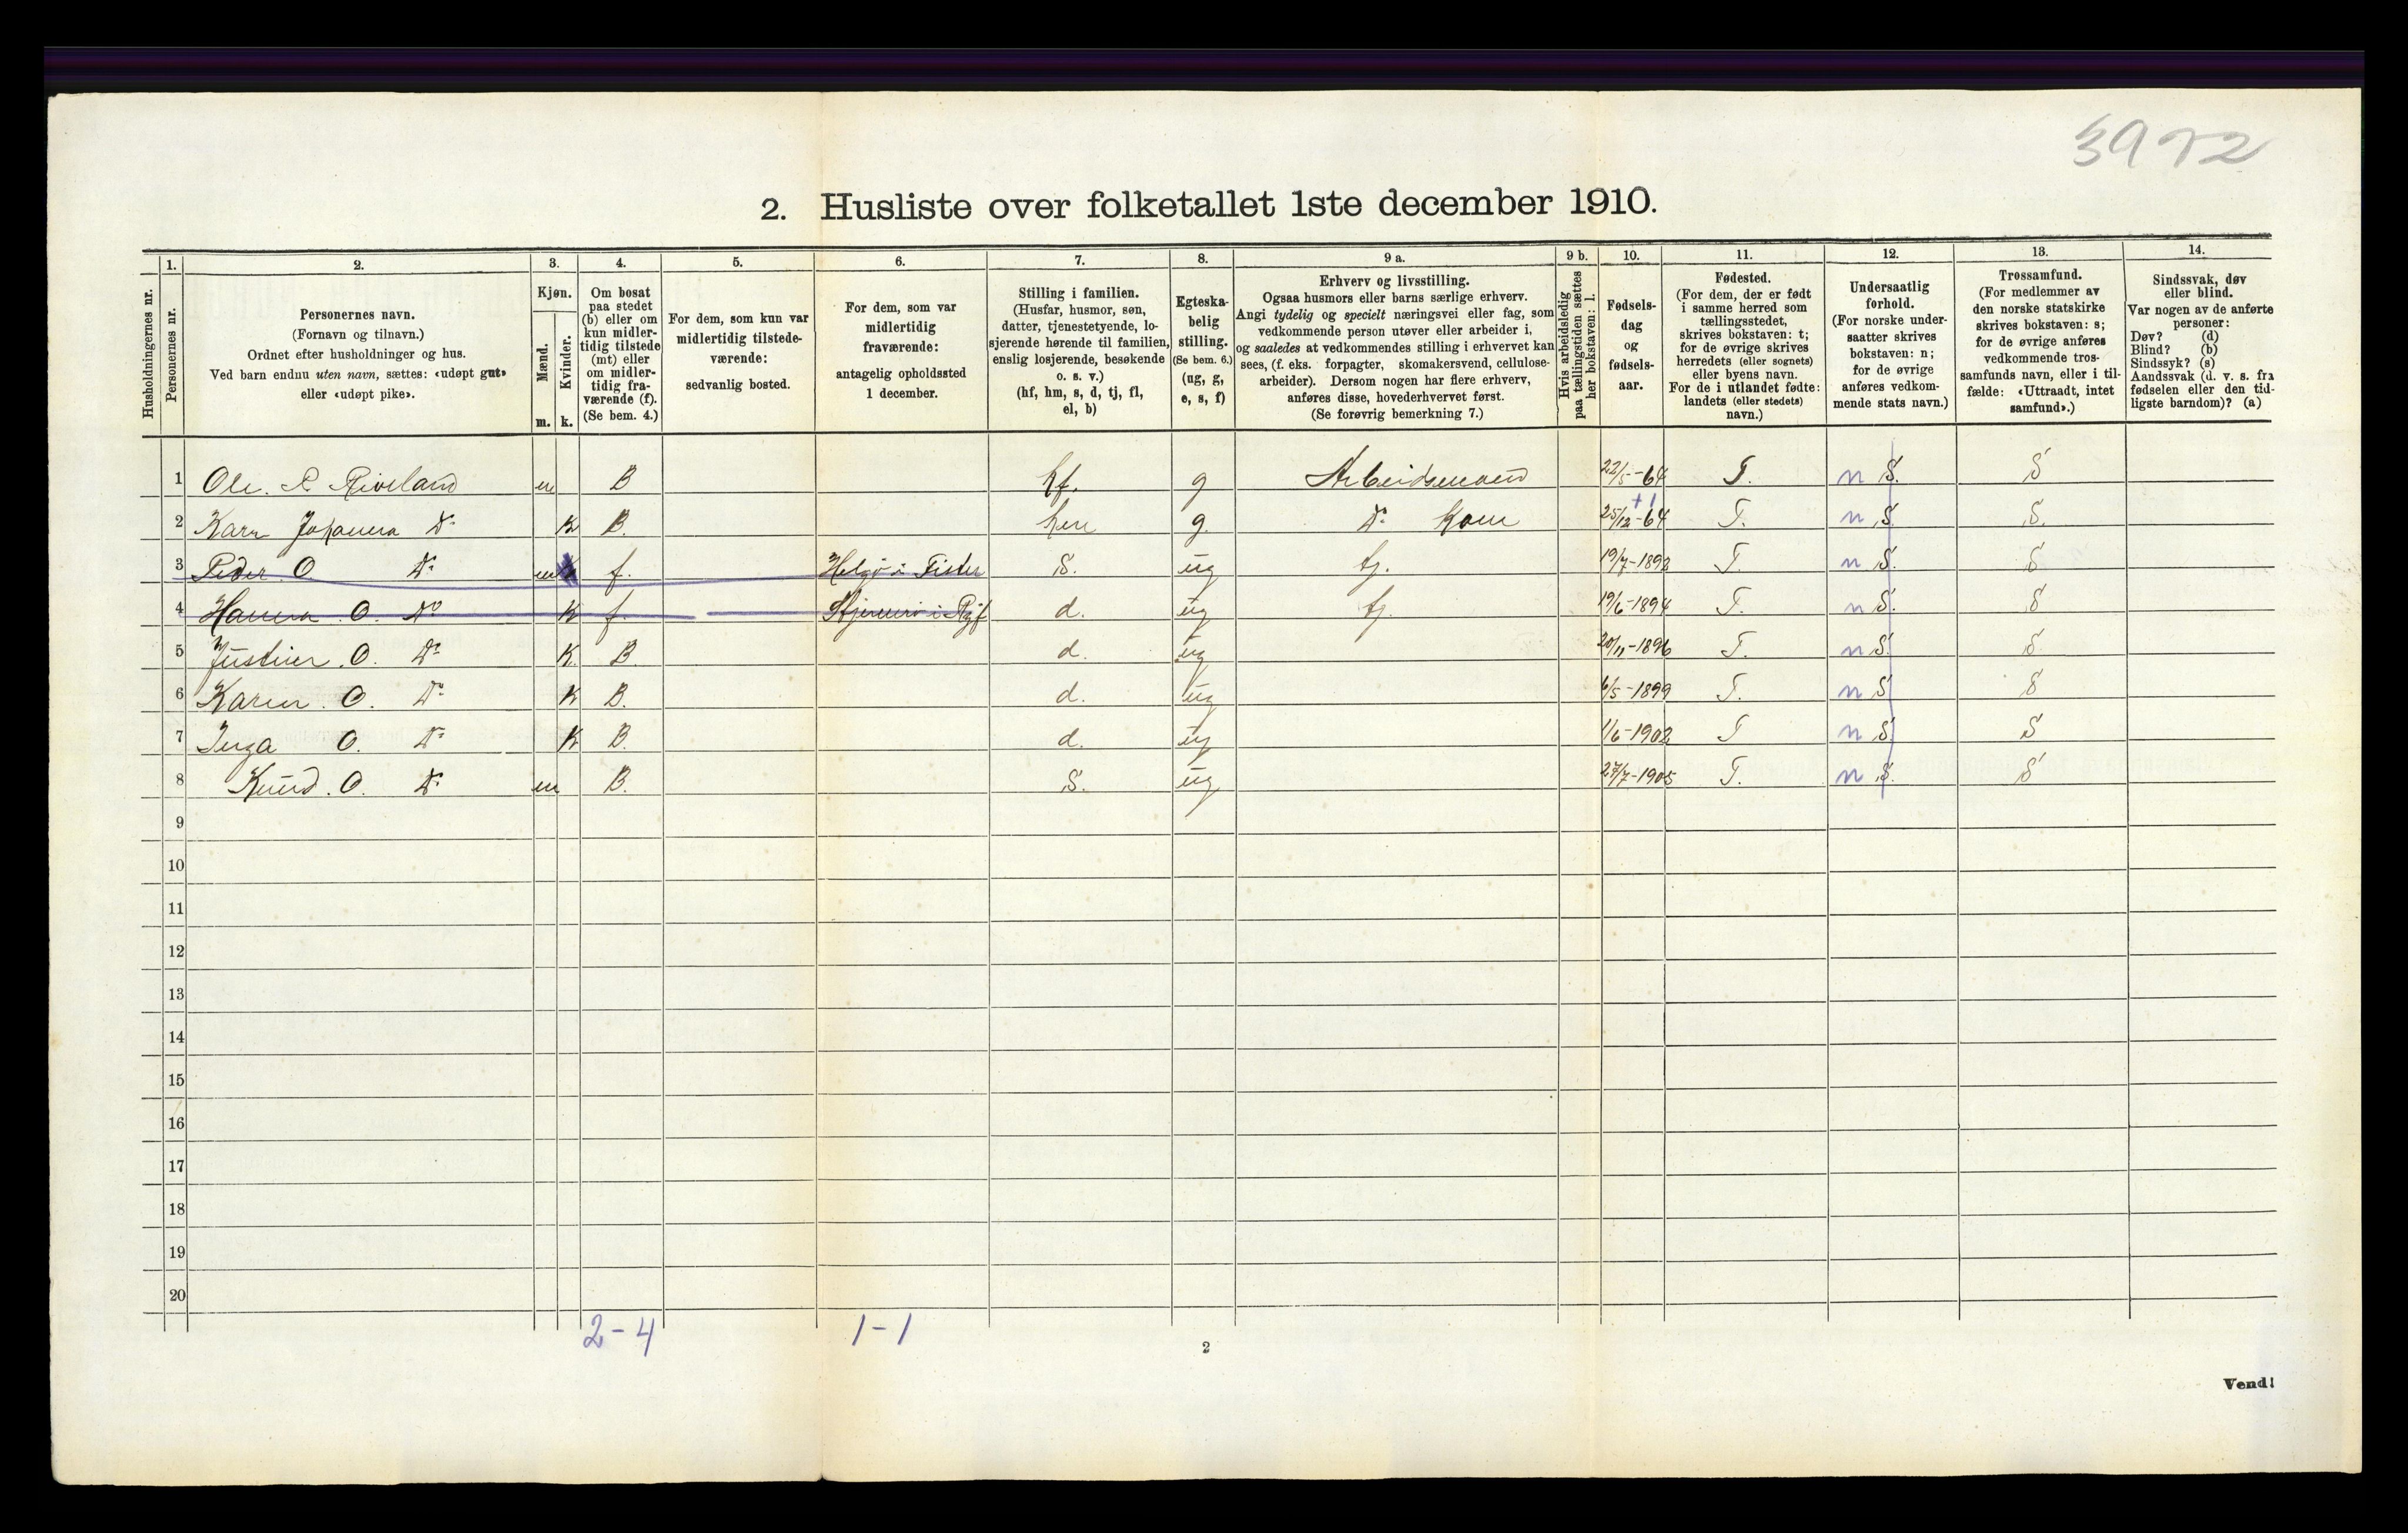 3972
2. Husliste over folketallet 1ste december 1910.
Husholdningernes nr.
1.
Personernes nr.
2.
Personernes navn.
(Fornavn og tilnavn.)
Ordnet efter husholdninger og hus.
Ved barn endnu uten navn, sættes: «udøpt gut»
eller «udøpt pike».
3.
Kjøn.
Mænd.
Kvinder.
m. k.
4.
Om bosat
paa stedet
(b) eller om
kun midler-
tidig tilstede
(mt) eller
om midler-
tidig fra-
værende (f).
(Se bem. 4.)
5.
For dem, som kun var
midlertidig tilstede-
værende:
sedvanlig bosted.
6.
For dem, som var
midlertidig
fraværende:
antagelig opholdssted
1 december.
7.
Stilling i familien.
(Husfar, husmor, søn,
datter, tjenestetyende, lo-
sjerende hørende til familien,
enslig losjerende, besøkende
o. s. v.)
(hf, hm, s, d, tj, fl,
el, b)
8.
Egteska-
belig
stilling.
(Se bem. 6.)
(ug, g,
e, s, f)
9 a.
Erhverv og livsstilling.
Ogsaa husmors eller barns særlige erhverv.
Angi tydelig og specielt næringsvei eller fag, som
vedkommende person utøver eller arbeider i,
og saaledes at vedkommendes stilling i erhvervet kan
sees, (f. eks. forpagter, skomakersvend, cellulose-
arbeider). Dersom nogen har flere erhverv,
anføres disse, hovederhvervet først.
(Se forøvrig bemerkning 7.)
9 b.
Hvis arbeidsledig
paa tællingstiden sættes
her bokstaven: l.
10.
Fødsels-
dag
og
fødsels-
aar.
11.
Fødested.
(For dem, der er født
i samme herred som
tællingsstedet,
skrives bokstaven: t;
for de øvrige skrives
herredets (eller sognets)
eller byens navn.
For de i utlandet fødte:
landets (eller stedets)
navn.)
12.
Undersaatlig
forhold.
(For norske under-
saatter skrives
bokstaven: n;
for de øvrige
anføres vedkom-
mende stats navn.)
13.
Trossamfund.
(For medlemmer av
den norske statskirke
skrives bokstaven: s;
for de øvrige anføres
vedkommende tros-
samfunds navn, eller i til-
fælde: «Uttraadt, intet
samfund».)
14.
Sindssvak, døv
eller blind.
Var nogen av de anførte
personer:
Døv? (d)
Blind? (b)
Sindssyk? (s)
Aandssvak (d. v. s. fra
fødselen eller den tid-
ligste barndom)? (a)
1 Ole. P Riveland m B hf. g Arbeidsmand 22/5-64 T. n S. S
2 Karn Johanna Do k B. hm g. Do Kone +1 25/12-64 T. n S S.
3 Peder O Do m f. Helgø i Fister S. ug tj. 19/7-1892 T. n S. S
4 Hanna O. Do k f. i Ryf d. ug tj. 19/6-1894 T. n S. S
5 Justine. O. Do K. B. d. ug 20/11-1896 T. n S. S
6 Karen. O. Do k B. d. ug 6/5-1899 T. n S S
7 Inga O. Do K B. d. ug 1/6-1902 T n S S
8 Knud. O. Do m B. S. ug 27/7-1905 T. n S. S
9
10
11
12
13
14
15
16
17
18
19
20
2-4 1-1
2
Vend!